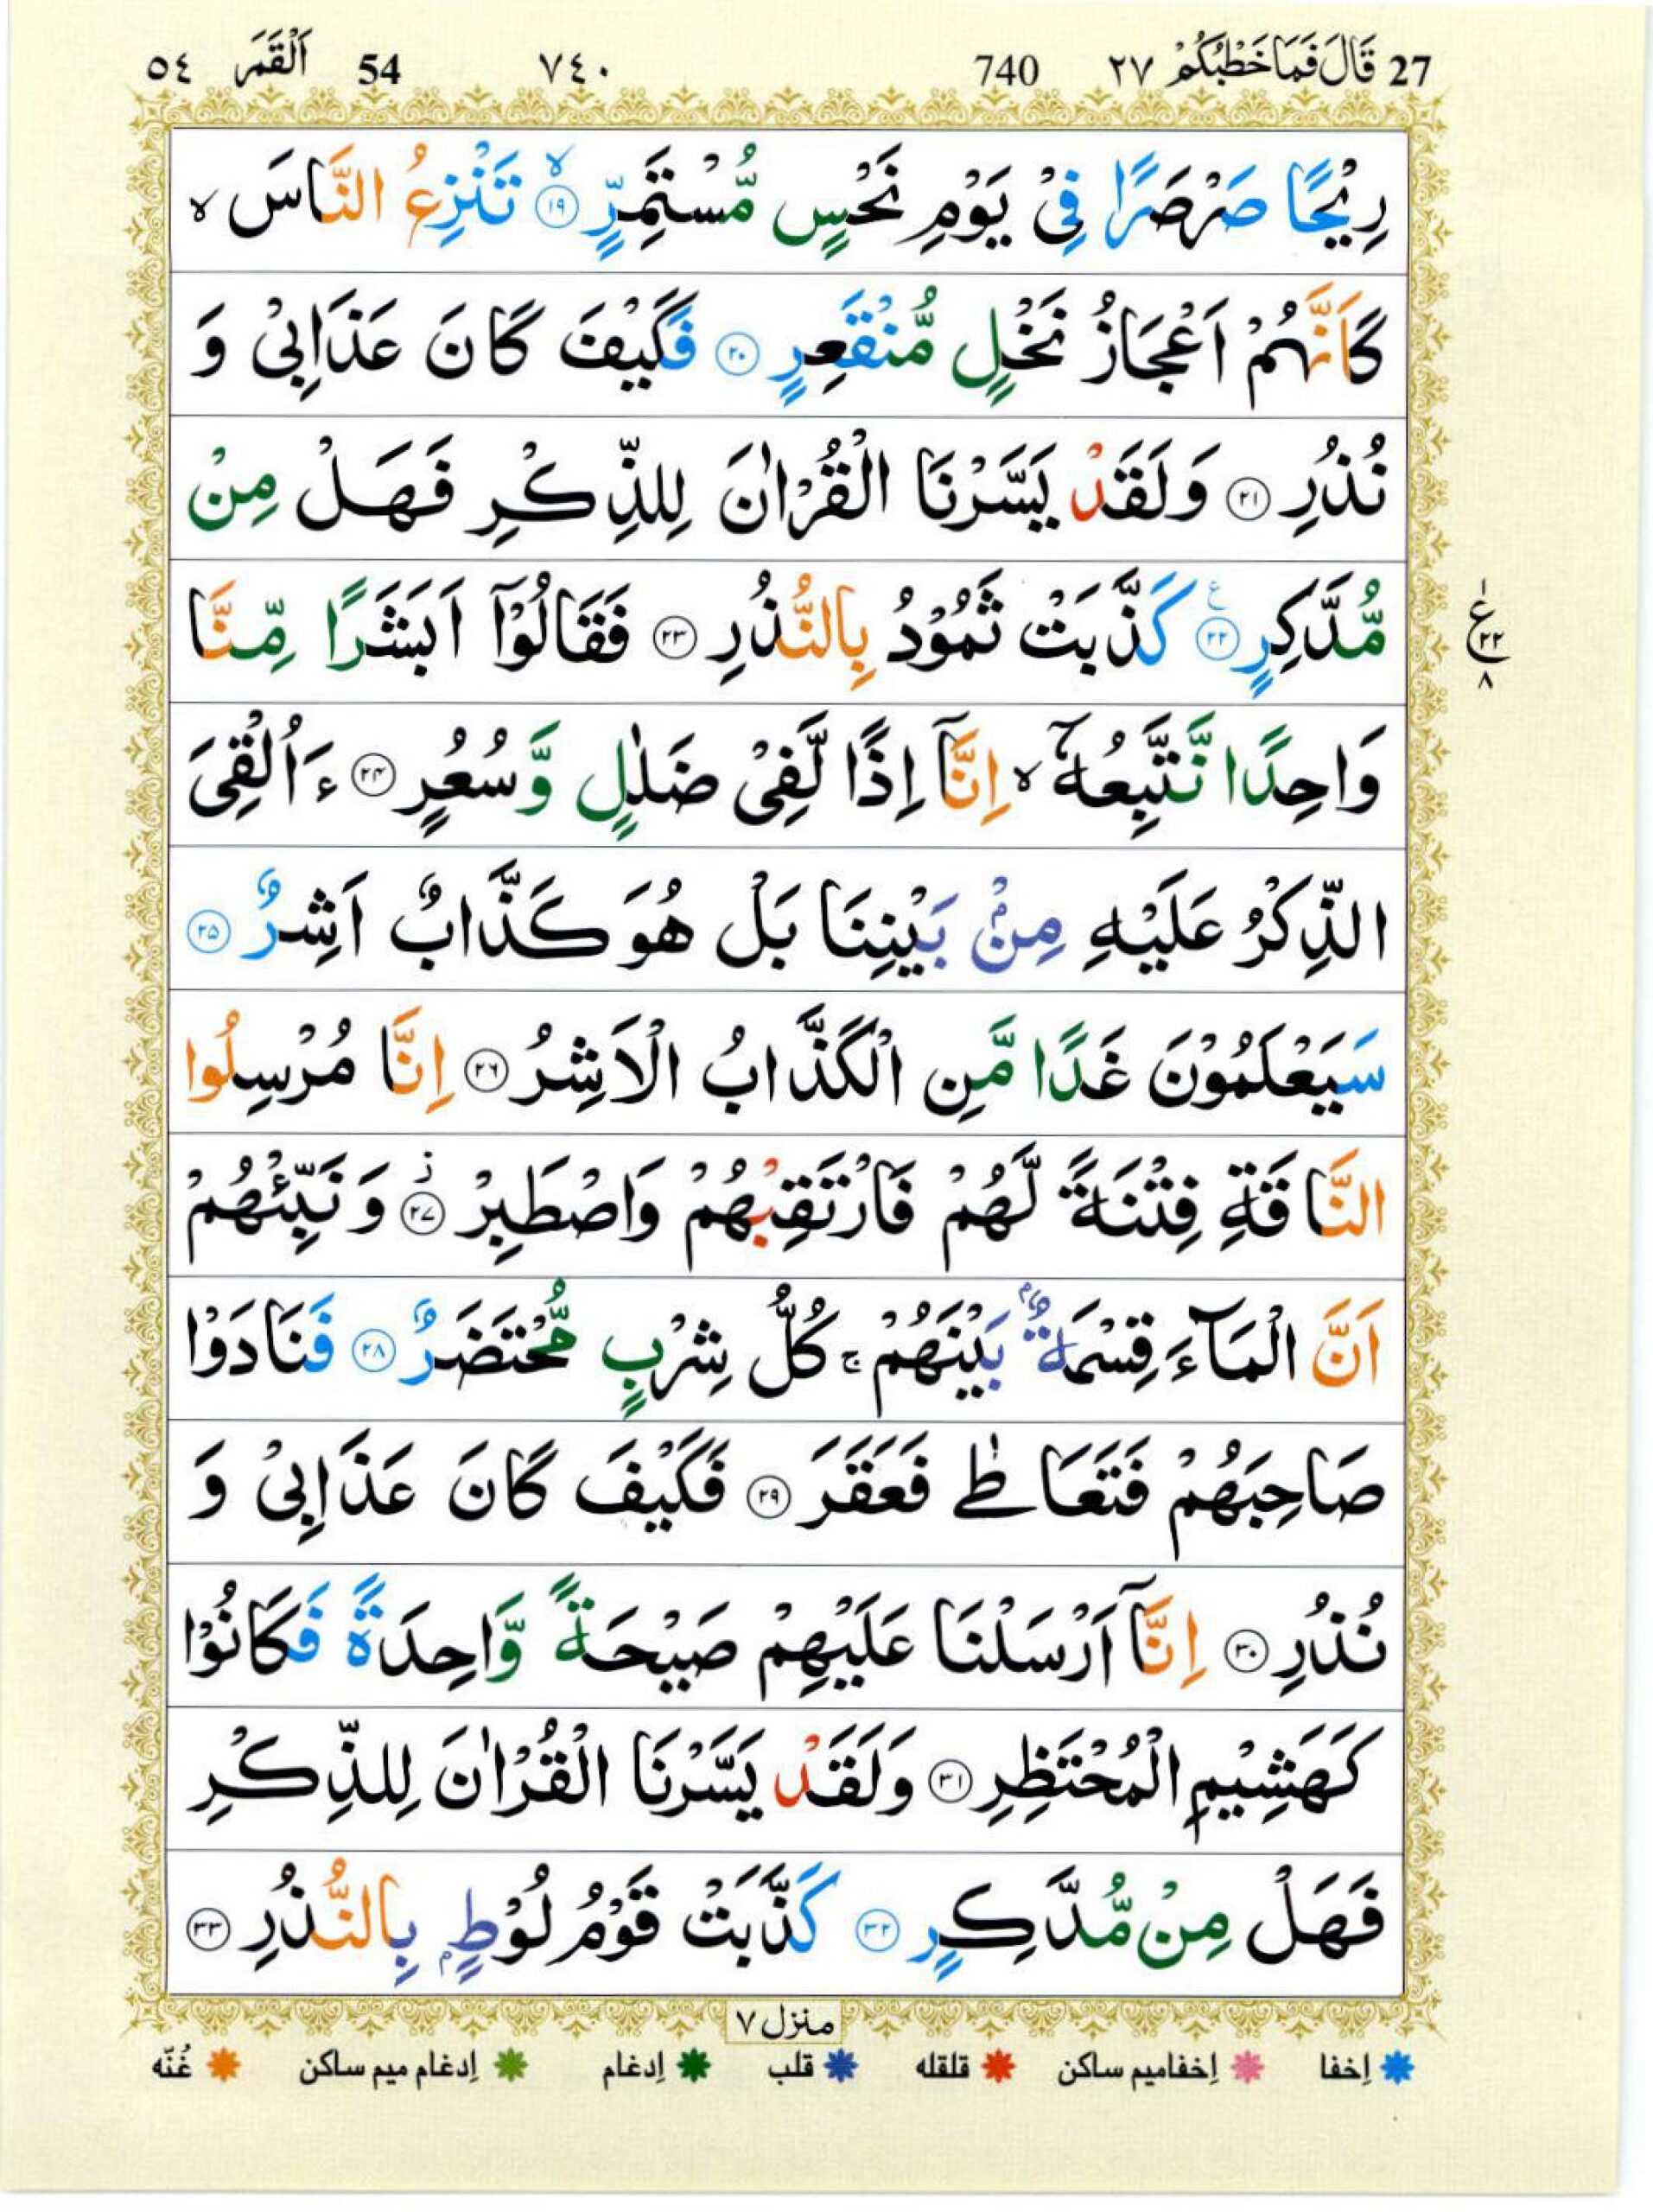 27 قَالَ فَمَا خَطْبُكُمْ ٢٧ 740 ٧٤٠ 54 اَلْقَمَر ٥٤
رِیْحًا صَرْصَرًا فِیْ یَوْمِ نَحْسٍ مُّسْتَمِرٍّ ۙ﴿۱۹﴾ تَنْزِعُ النَّاسَ ۙ
كَاَنَّهُمْ اَعْجَازُ نَخْلٍ مُّنْقَعِرٍ ﴿۲۰﴾ فَكَیْفَ كَانَ عَذَابِیْ وَ
نُذُرِ ﴿۲۱﴾ وَلَقَدْ یَسَّرْنَا الْقُرْاٰنَ لِلذِّكْرِ فَهَلْ مِنْ
مُّدَّكِرٍ ﴿۲۲﴾ ع كَذَّبَتْ ثَمُوْدُ بِالنُّذُرِ ﴿۲۳﴾ فَقَالُوْۤا اَبَشَرًا مِّنَّا
ع ١ ٢٢ ٨
وَاحِدًا نَّتَّبِعُهٗۤ ۙ اِنَّاۤ اِذًا لَّفِیْ ضَلٰلٍ وَّسُعُرٍ ﴿۲۴﴾ ءَاُلْقِیَ
الذِّكْرُ عَلَیْهِ مِنْۢ بَیْنِنَا بَلْ هُوَ كَذَّابٌ اَشِرٌ ﴿۲۵﴾
سَیَعْلَمُوْنَ غَدًا مَّنِ الْكَذَّابُ الْاَشِرُ ﴿۲۶﴾ اِنَّا مُرْسِلُوا
النَّاقَةِ فِتْنَةً لَّهُمْ فَارْتَقِبْهُمْ وَاصْطَبِرْ ؗ﴿۲۷﴾ وَ نَبِّئْهُمْ
اَنَّ الْمَآءَ قِسْمَةٌۢ بَیْنَهُمْ ۚ كُلُّ شِرْبٍ مُّحْتَضَرٌ ﴿۲۸﴾ فَنَادَوْا
صَاحِبَهُمْ فَتَعَاطٰی فَعَقَرَ ﴿۲۹﴾ فَكَیْفَ كَانَ عَذَابِیْ وَ
نُذُرِ ﴿۳۰﴾ اِنَّاۤ اَرْسَلْنَا عَلَیْهِمْ صَیْحَةً وَّاحِدَةً فَكَانُوْا
كَهَشِیْمِ الْمُحْتَظِرِ ﴿۳۱﴾ وَلَقَدْ یَسَّرْنَا الْقُرْاٰنَ لِلذِّكْرِ
فَهَلْ مِنْ مُّدَّكِرٍ ﴿۳۲﴾ كَذَّبَتْ قَوْمُ لُوْطٍۭ بِالنُّذُرِ ﴿۳۳﴾
منزل ٧
إخفا إخفا ميم ساكن قلقله قلب إدغام إدغام ميم ساكن غُنّه